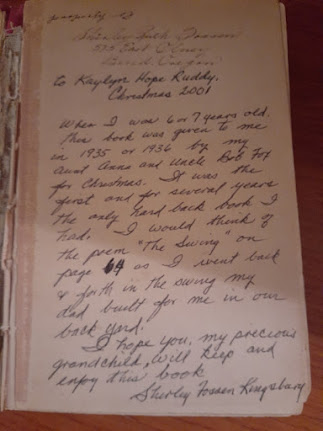 Shirley Ruth Fossen
575 East Olney
Bend, Oregon
to Kaylyn Hope Ruddy,
Christmas 2001
When I was 6 or 7 years old.
This book was given to me
in 1935 or 1936 by my
Aunt Anna and Uncle Bob Fox
for Christmas. It was the
first and for several years
the only hard back book I
had. I would think of
the poem "The Swing" on
page 64 as I went back
& forth in the swing my
dad built for me in our
back yard.
I hope you, my precious
grandchild, will keep and
enjoy this book
Shirley Fossen Kingsbury